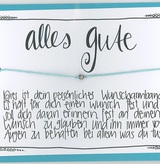 alles gute
Dies ist dein persönliches Wunscharmband
Es hält für dich einen Wunsch fest und
soll dich daran erinnern fest an deinen
Wunsch zu glauben und ihn immer vor
Augen zu behalten bei allem was du tust